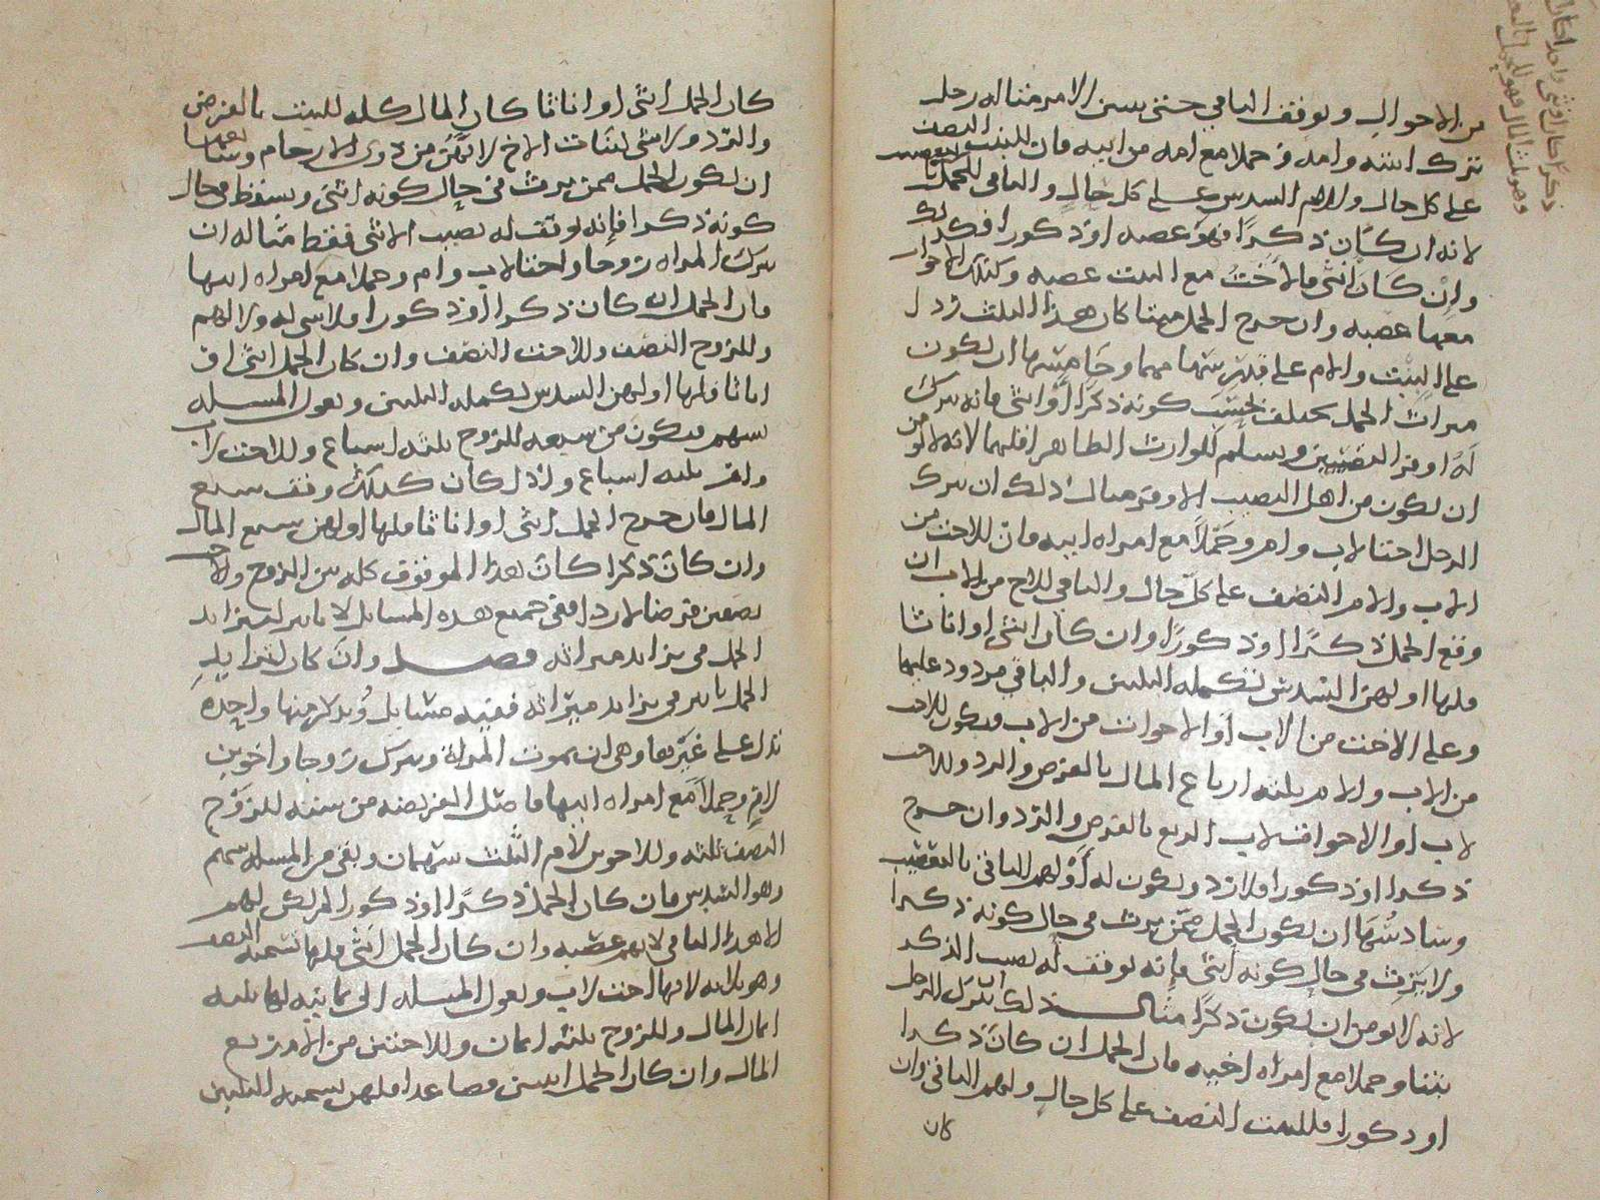 من الاحوال ويوقف الباقي حتى يتبين الامر مثاله رجل
ترك ابنته وامه وحملا مع امه من ابيه فان للبنت النصف
على كل حال وللام السدس على كل حال والباقي للحمل
لانه ان كان ذكرًا فهو عصبه او ذكورا فكذلك
وان كَانَ انثى فالاخت مع البنت عصبه وكذلك الاخوات
معها عصبه وان خرج الحمل ميتا كان هذا الثلث ردا
على البنت والام على قدر سهامهما وخامسها ان يكون
ميراث الحمل يختلف بحسب كونه ذكرا او انثى فانه يترك
له اوفر النصيبين ويسلم للوارث الظاهر اقلهما لانه لا يومن
ان يكون من اهل النصيب الاوفر مثال ذلك ان يترك
الرجل اختا لاب وام وحملا مع امراه ابيه فان للاخت من
الاب والام النصف على كل حال والباقي للاخ من الاب ان
وقع الحمل ذكرًا او ذكورًا وان كان انثى او اناثا
فلها او لهن السدس تكمله الثلثين والباقي مردود عليها
وعلى الاخت من الاب او الاخوات من الاب فيكون للاخت
من الاب والام ثلثه ارباع المال بالفرض والرد وللاخت
لاب او الاخوات لاب الربع بالفرض والرد وان خرج
ذكرا او ذكورا فلا رد ويكون له او لهم الباقي بالتعصيب
وسادسُها ان يكون الحمل ممن يرث في حال كونه ذكرا
ولا يرث في حال كونه انثى فإنه يوقف له نصيب الذكر
لانه لا يومن ان يكون ذكرًا مثال ذلك ان يترك الرجل
بنتا وحملا مع امراه اخيه فان الحمل ان كان ذكرا
او ذكورا فللبنت النصف على كل حال ولهم الباقي وان
كان
كان الحمل انثى او اناثا كان المال كله للبنت بالفرض
والرد ولا شى لبنات الاخ لانهن من ذوى الارحام وسابعها
ان يكون الحمل ممن يرث في حال كونه انثى ويسقط في حال
كونه ذكرا فإنه يوقف له نصيب الانثى فقط مثاله ان
تترك المراه زوجا واختا لاب وام وحملا مع امراه ابيها
فان الحمل ان كان ذكرا او ذكورا فلا شى له ولا لهم
وللزوج النصف وللاخت النصف وان كان الحمل انثى او
اناثا فلها او لهن السدس تكمله الثلثين وتعول المسله
بسهم فيكون من سبعه للزوج ثلثه اسباع وللاخت لاب
وام ثلثه اسباع واذا كان كذلك وقف سبع
المال فان خرج الحمل انثى او اناثا فلها او لهن سبع المال
وان كان ذكرا كان هذا الموقوف كله بين الزوج والاخت
نصفين فرضا لا ردا ففي جميع هذه المسايل لا تاثير لتزايد
الحمل في تزايد ميراثه فصل وان كان لتزايد
الحمل تاثير في تزايد ميراثه ففيه مسايل ونذكر منها واحده
تدل على غيرها وهى ان تموت المراة وتترك زوجا واخوين
لام وحملا مع امراه ابيها فاصل الفريضه من سته للزوج
النصف ثلثه وللاخوين لأم الثلث سهمان وبقى من المسله سهم
وهو السدس فان كان الحمل ذكرًا او ذكورا لم يكن لهم
الا هذا الباقي لانهم عصبه وان كان الحمل انثى فلها تسميه النصف
وهو ثلاثه لانها اخت لاب وتعول المسله الى ثمانيه لها ثلثه
اثمان المال وللزوج ثلثه اثمان وللاخوين من الأم ربع
المال وان كان الحمل انثيين فصاعدا فلهن تسميه الثلثين